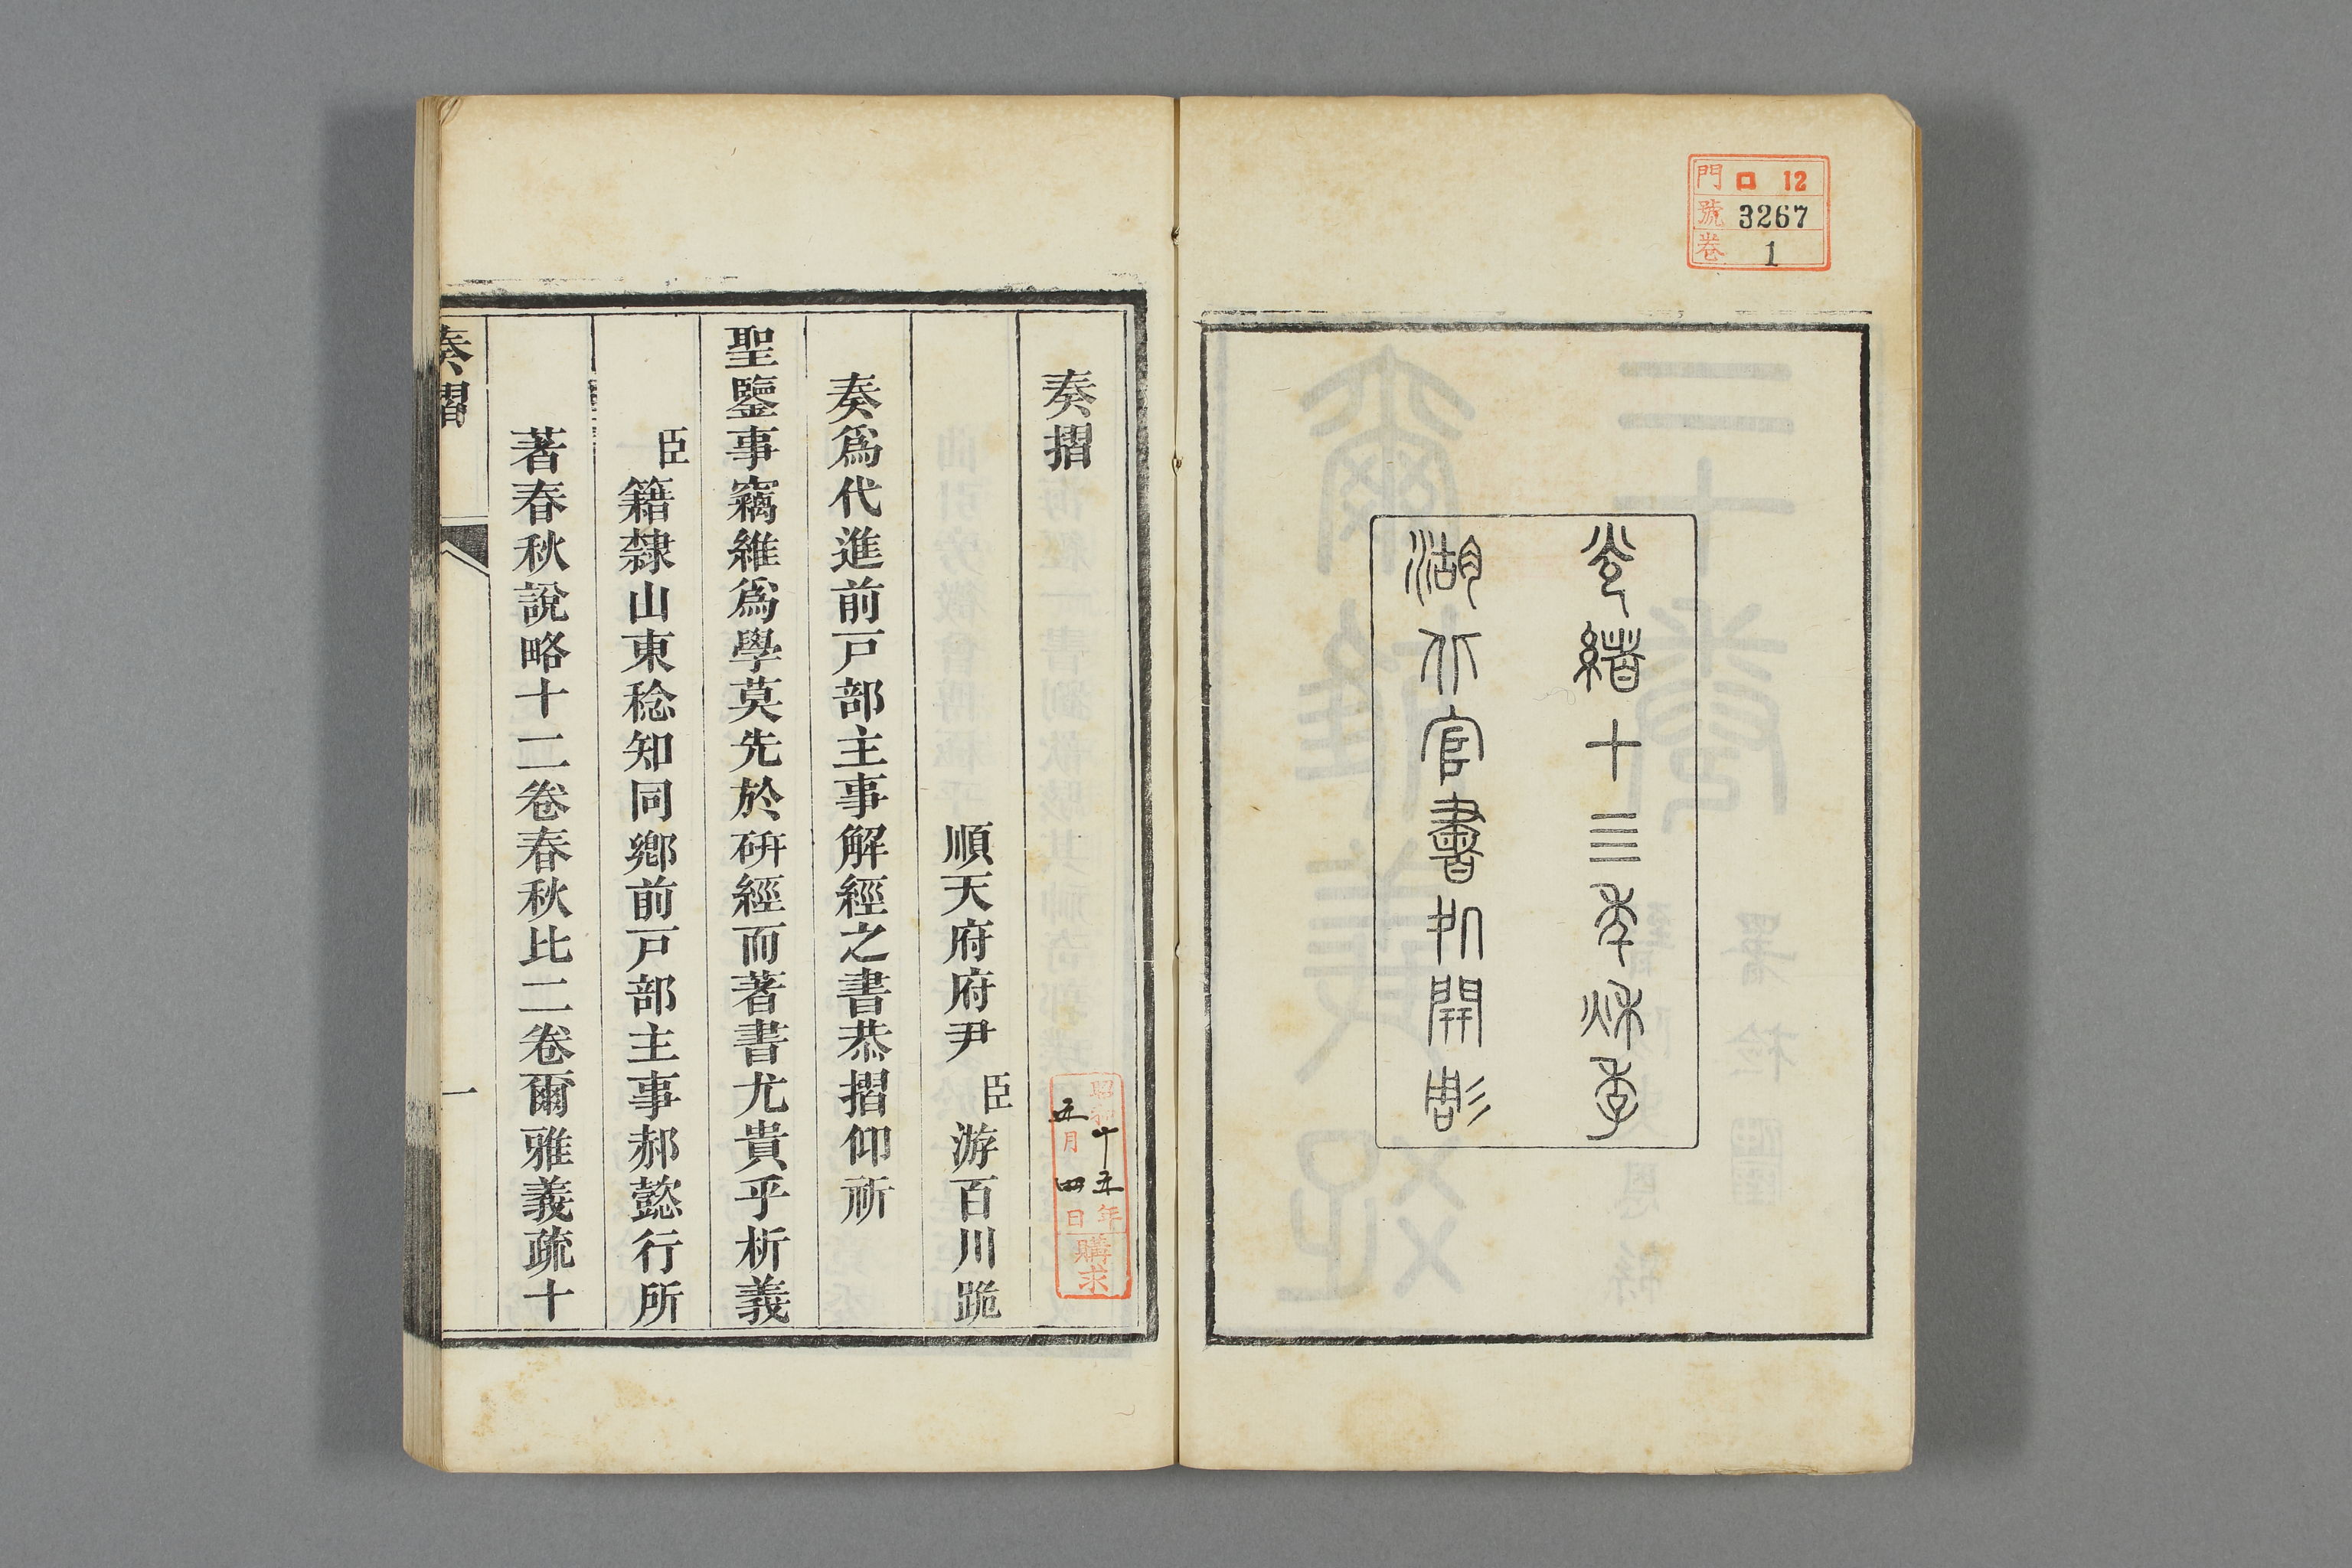 門 ロ 12
號 3267
卷 1
光緒十三年秋季
湖北官書処開彫
奏摺
昭和十五年
五月四日
購求
順天府府尹臣游百川跪
奏爲代進前戸部主事解經之書恭摺仰祈
聖鑒事竊維爲學莫先於硏經而著書尤貴乎析義
臣籍隸山東稔知同鄉前戸部主事郝懿行所
著春秋說略十二卷春秋比二卷爾雅義疏十
奏摺
一